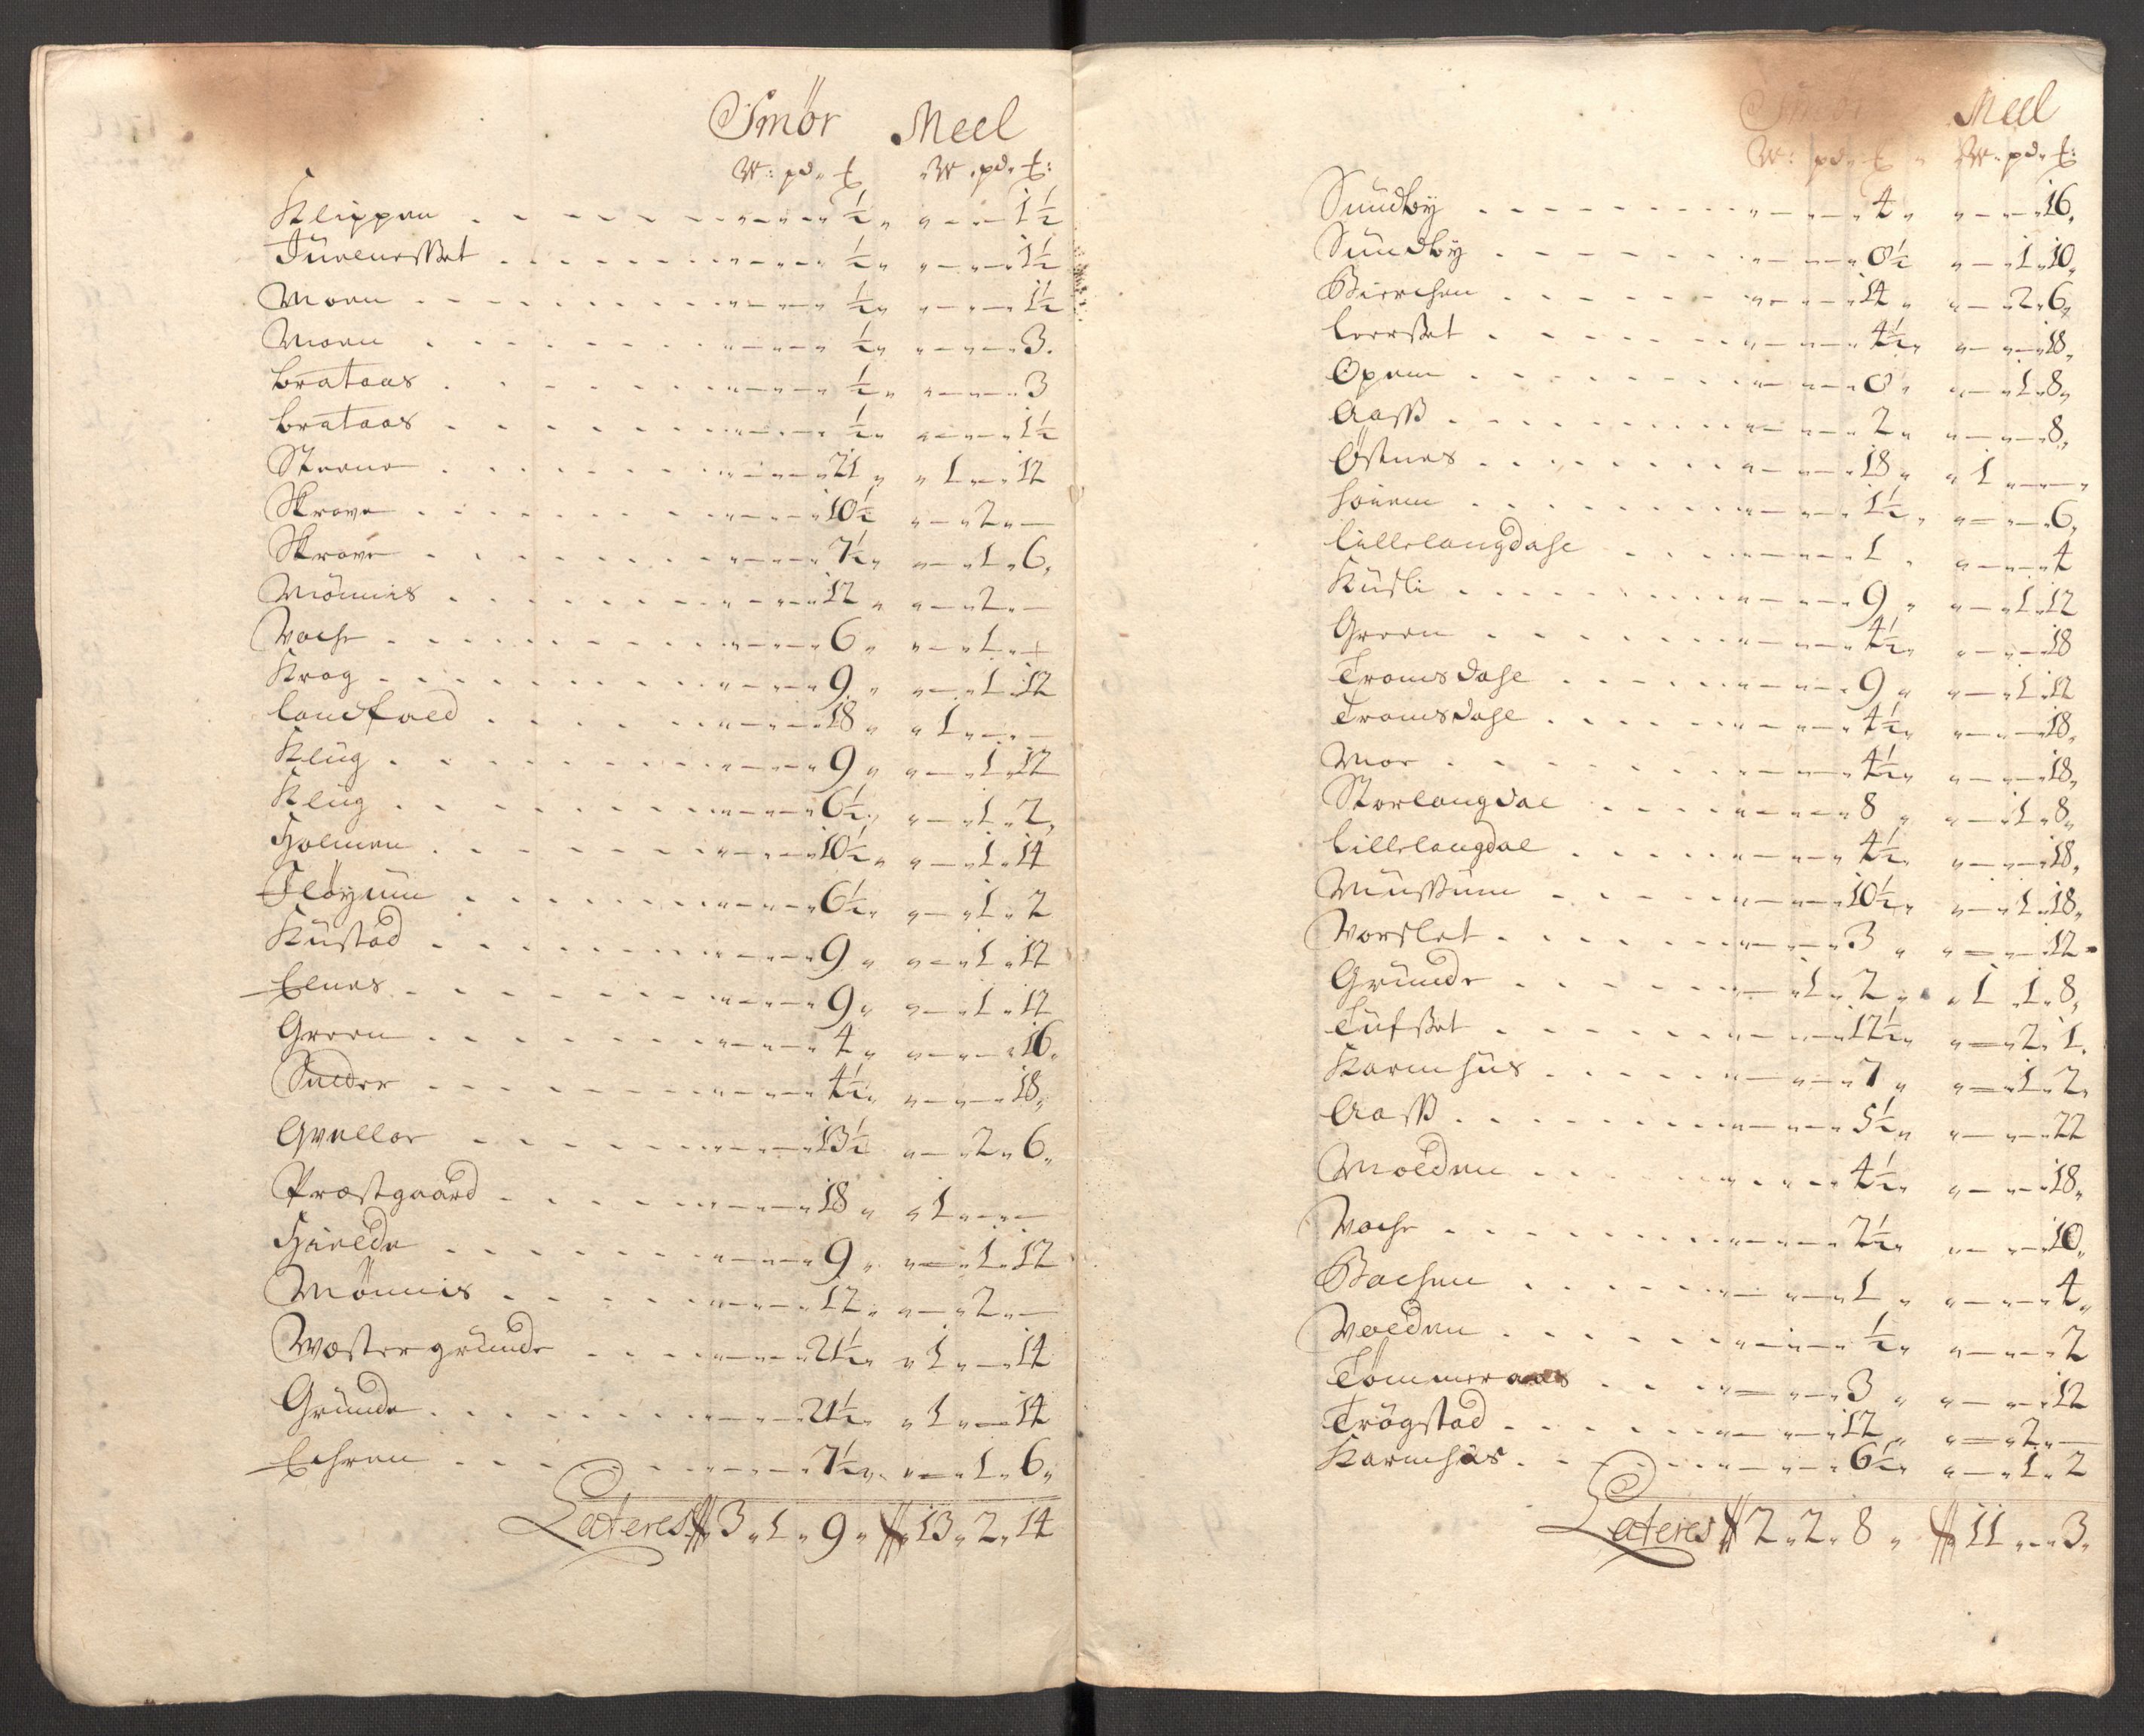 Smör Meel
W: pd. £ W. pd. £:
Klippen ½ 1½
Juelnesset ½ 1½
Moen ½ 1½
Moen ½ 3.
brataas ½ 3
brataas ½ 1½
Steene 21 1 - 12
Skrove 10½ 2 -
Skrove 7½ 1. 6.
Mönnis 12 2 -
Wohe 6 1 -
Krog 9 1. 12
landfald 18 1 - -
Klüg 9 1. 12
Klüg 6½ 1. 2.
Holmen 10½ 1. 14
Flöynn 6½ 1. 2
Küstad 9 1. 12
Elnes 9 1. 12
Green 4 16.
Sneder 4½ 18.
Qveller 13½ 2. 6.
Præstgaard 18 1 - -
Hielde 9 1. 12
Mönnis 12 2 -
Westergrunde 21½ 1 - 14
Gründe 21½ 1 - 14
Echren 7½ 1. 6.
Lateres 3. 1. 9. 13. 2. 14
Smör Meel
W: pd. £ W. pd. £:
Sundby 4 16.
Sündby 8½ 1. 10.
Bierchen 14 2. 6.
leersset 4½ 18.
Opem 8 1. 8.
Aass 2 8.
Östnes 18 1 - -
hoiem 1½ 6.
lillelangdahl 1 4
Küsli 9 1. 12
Green 4½ 18
Tromsdahl 9 1. 12
Tromsdahl 4½ 18.
Moe 4½ 18.
Storlangdal 8 1. 8.
lillelangdal 4½ 18.
Müssüm 10½ 1. 18.
Worslet 3 12
Gründe 1. 2 1. 1. 8.
Tüfset 12½ 2. 1.
Karmhüs 7 1. 2.
Aass 5½ 22
Molden 4½ 18.
Wohe 2½ 10.
Bachen 1 4.
Volden ½ 2
Tömmeraas 3 12
Trögstad 12 2 -
Karmhus 6½ 1. 2
Lateres 2. 2. 8. 11 - 3.